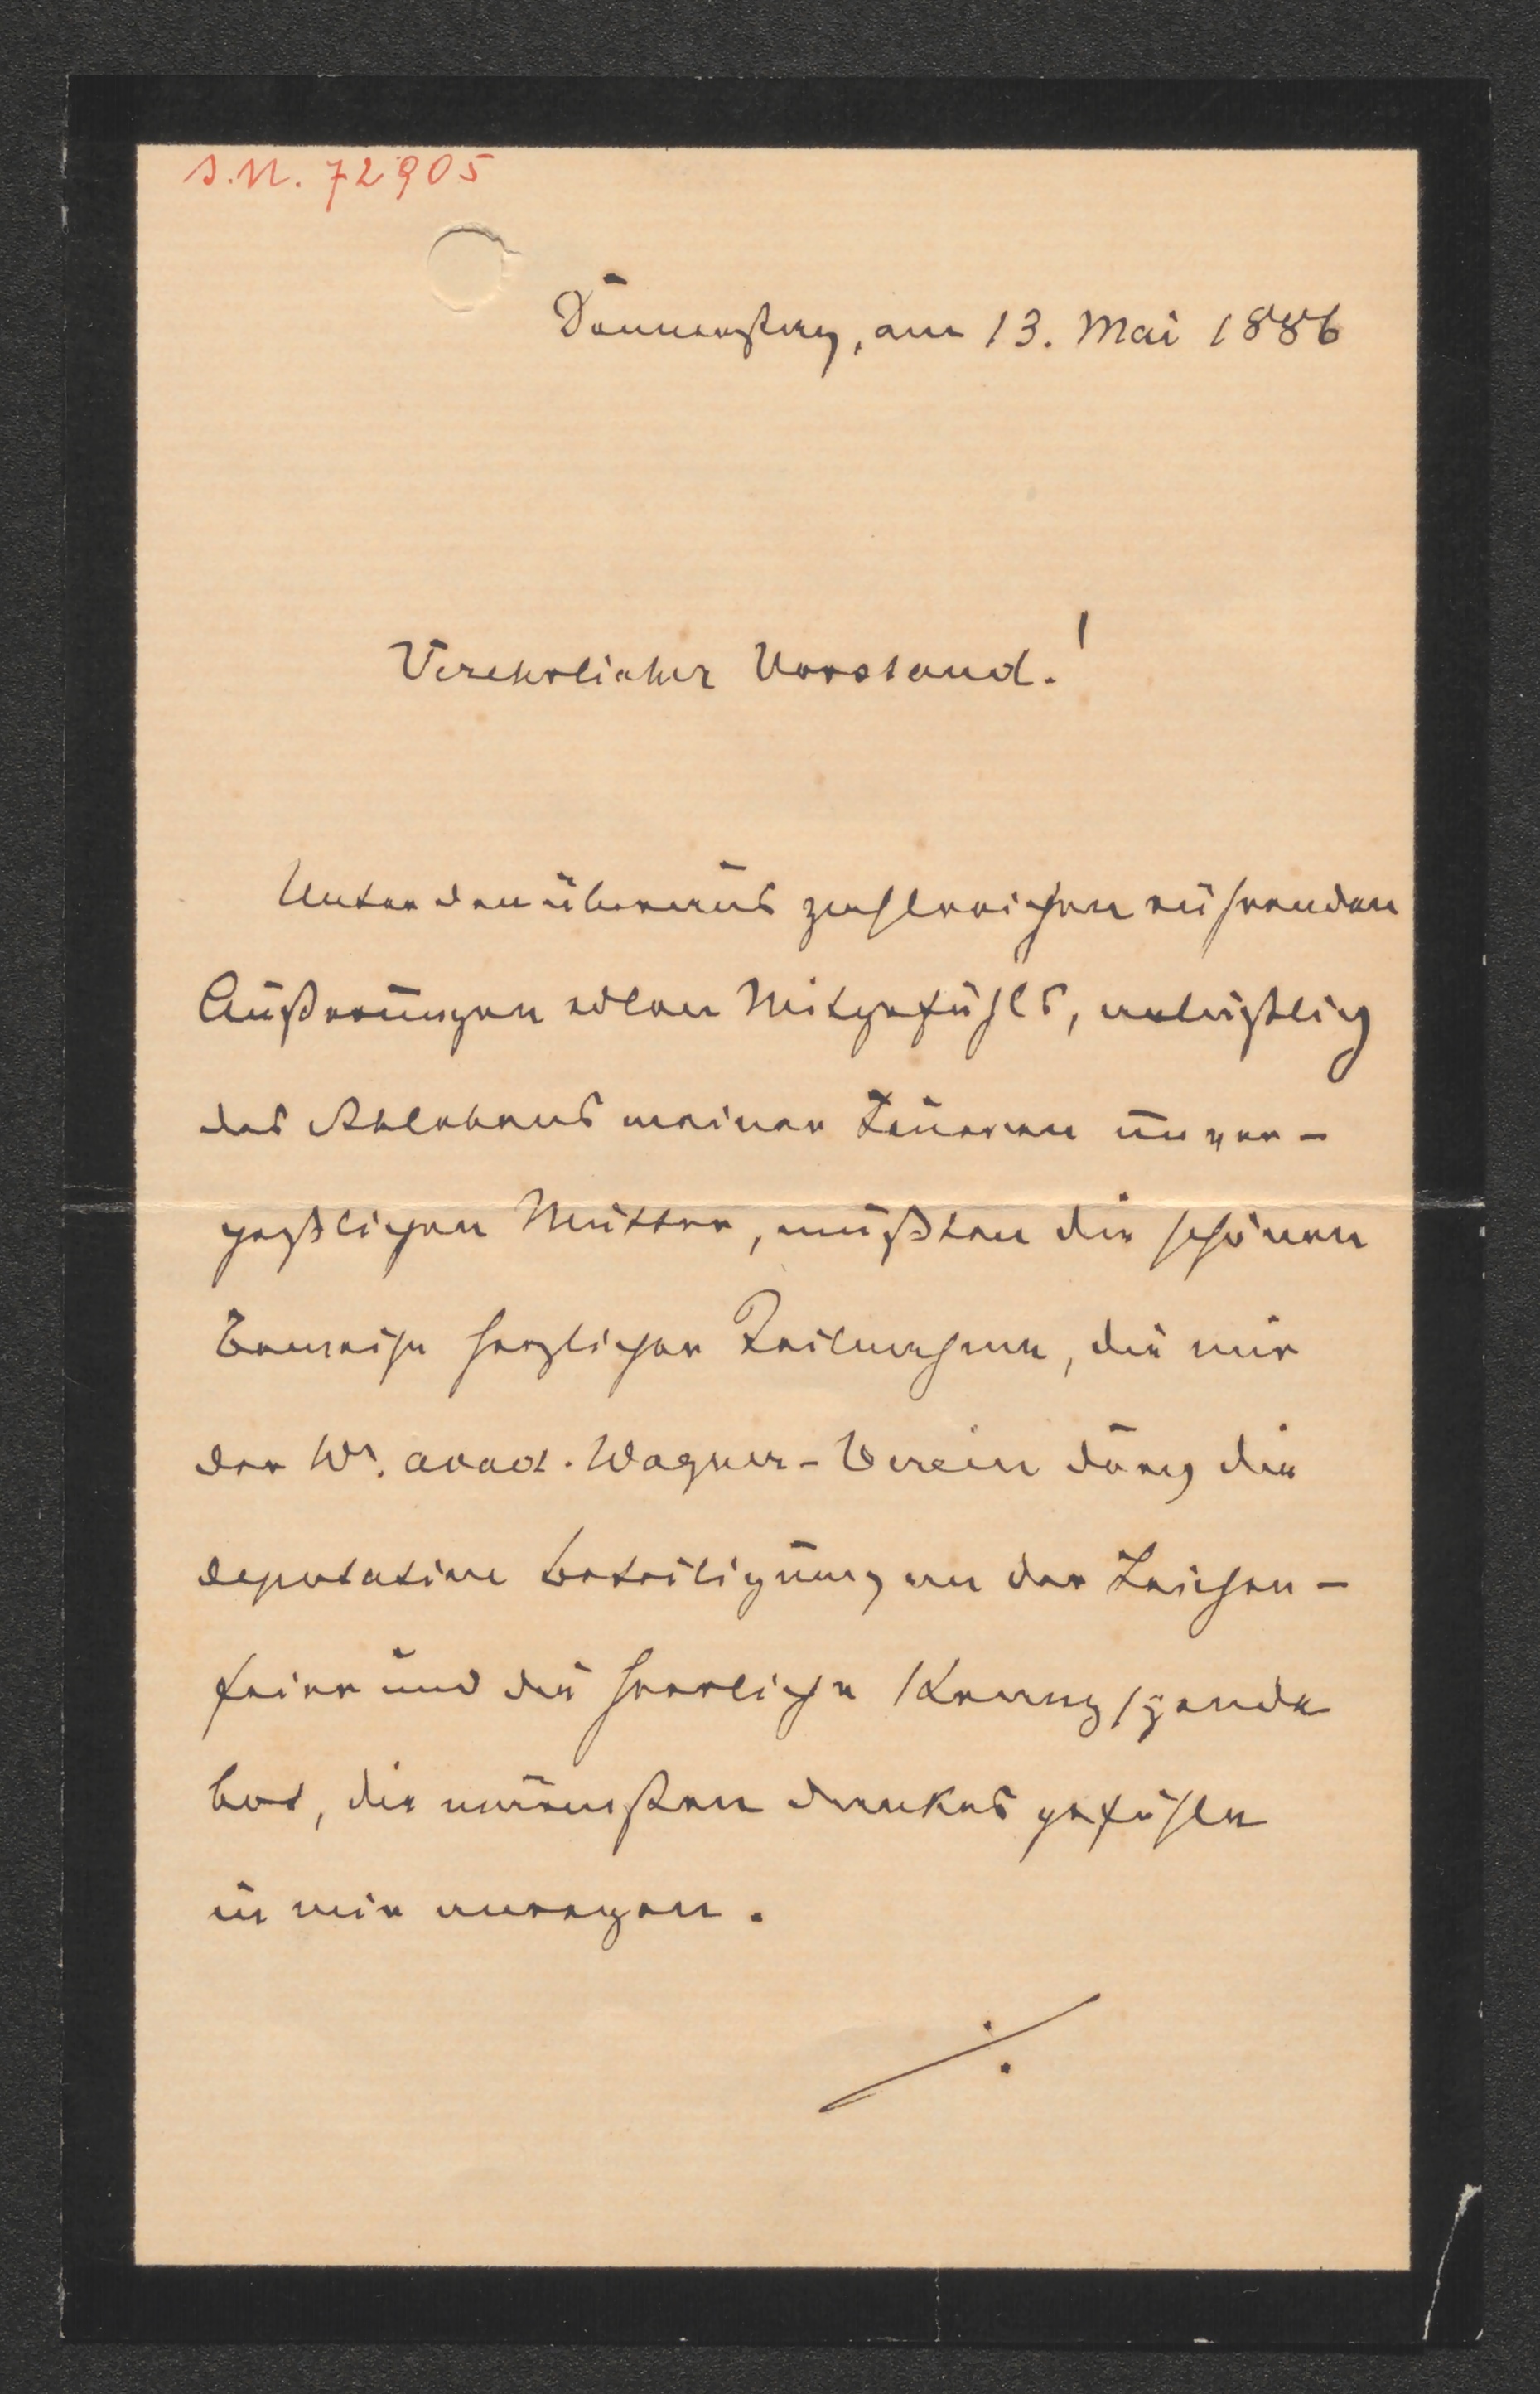 I.N. 72905
Donnerstag, am 13. Mai 1886
Verehrlicher Vorstand!
Unter den überaus zahlreichen rührenden
Äußerungen edlen Mitgefühls, anläßlich
des Ablebens meiner teueren unver-
geßlichen Mutter, mußten die schönen
Beweise herzlicher Teilnahme, die mir
der Wr. acad. Wagner-Verein durch die
deputative Beteiligung an der Leichen-
feier und die herrliche Kranzspende
bot, die wärmsten Dankesgefühle
in mir anregen.
./.